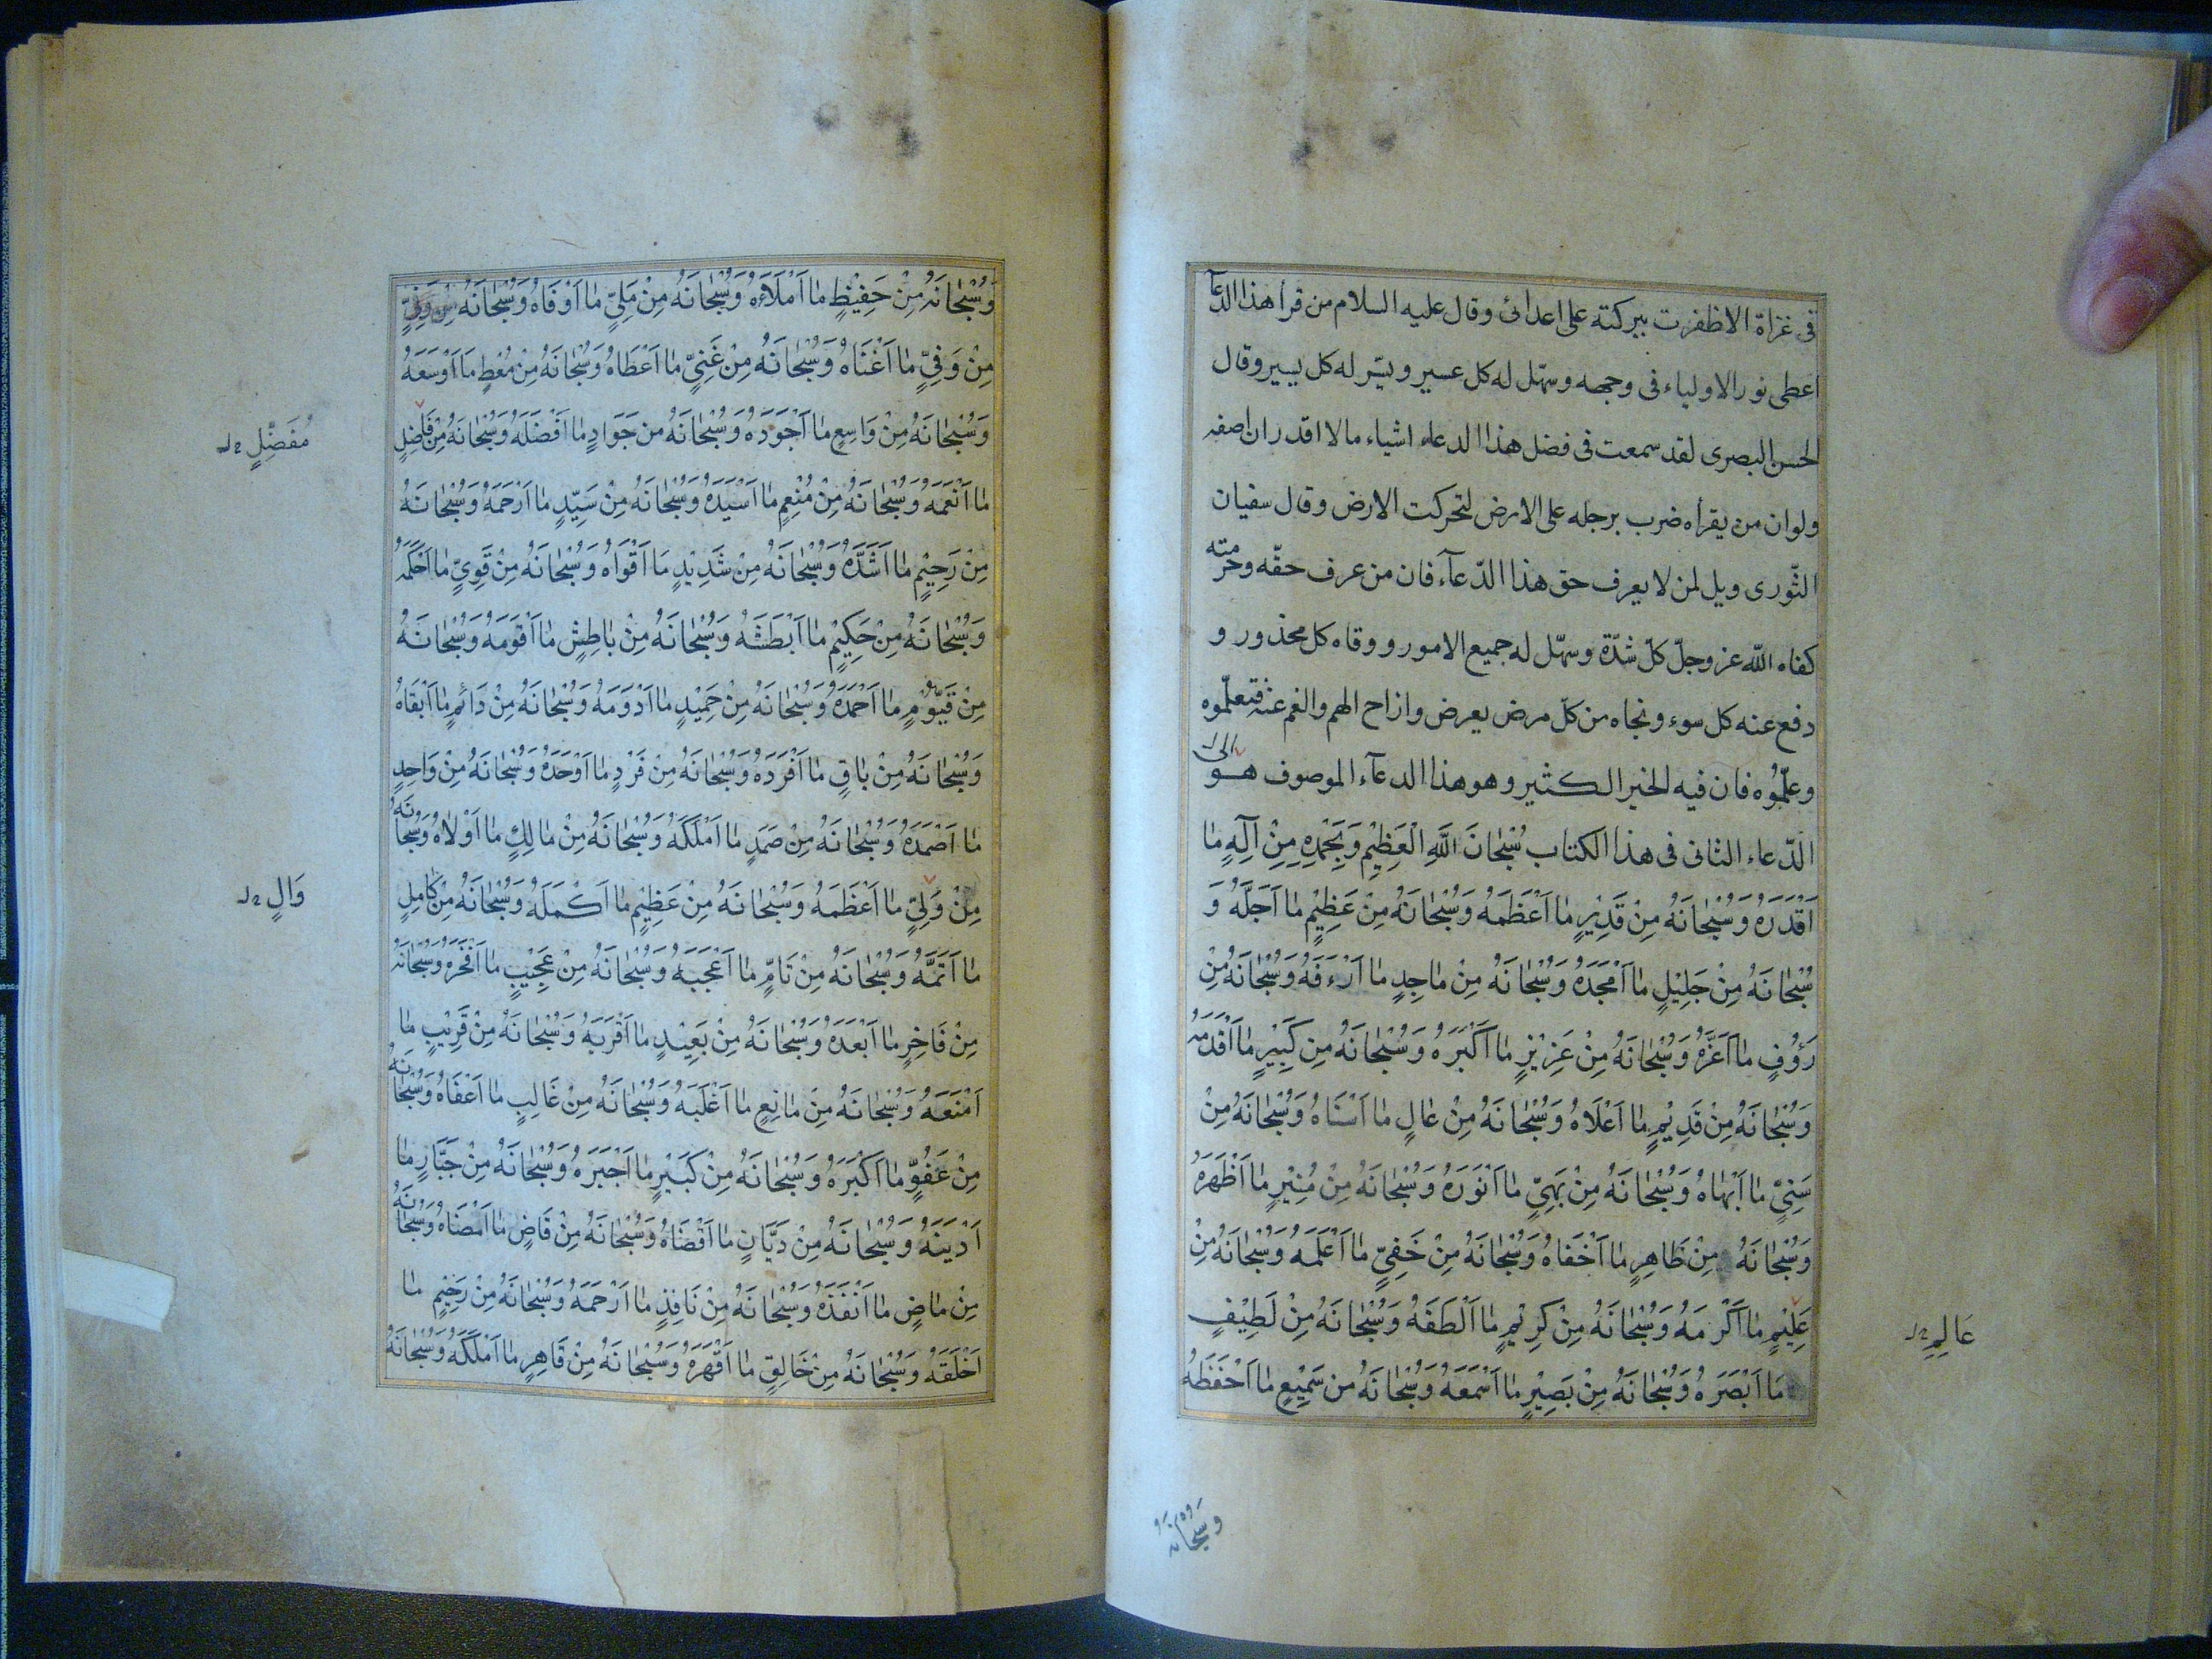 فى غزاة الا ظفرت ببركته على اعدائى وقال عليه السلام من قرأ هذا الدعآ
اعطى نور الاولياء فى وجهه وسهّل له كل عسير ويسّر له كل يسير وقال
الحسن البصرى لقد سمعت فى فضل هذا الدعاء اشياء مالا اقدر ان اصفه
ولو ان من يقرأه ضرب برجله على الارض لتحركت الارض وقال سفيان
الثّورى ويل لمن لا يعرف حق هذا الدّعآء فان من عرف حقّه وحرمته
كفاه اللّه عز وجلّ كلّ شدّة وسهّل له جميع الامور ووقاه كل محذور و
دفع عنه كل سوء ونجاه من كلّ مرض يعرض وازاح الهم والغم عنه فتعلّموه
وعلّموُه فان فيه الخير الكثير وهو هذا الدعآء الموصوف هو
الدّعاء الثانى فى هذا الكتاب سُبْحَانَ اللّٰهِ الْعَظِيْمِ وَبِحَمْدِهِ مِنْ اِلٰهٍ مٰا
اَقْدَرَهُ وَسُبْحَانَهُ مِنْ قَدِيْرٍ مٰا اَعْظَمَهُ وَسُبْحَانَهُ مِنْ عَظِيْمٍ مٰا اَجَلَّهُ وَ
سُبْحَانَهُ مِنْ جَلِيْلٍ مٰا اَمْجَدَهُ وَسُبْحَانَهُ مِنْ مٰاجِدٍ مٰا اَرْءَفَهُ وَسُبْحَانَهُ مِنْ
رَؤُوفٍ مٰا اَعَزَّهُ وَسُبْحَانَهُ مِنْ عَزِيْزٍ مٰا اَكْبَرَهُ وَسُبْحَانَهُ مِن كَبِيْرٍ مٰا اَقْدَمَهُ
وَسُبْحَانَهُ مِنْ قَدِيْمٍ مٰا اَعْلَاهُ وَسُبْحَانَهُ مِنْ عٰالٍ مٰا اَسْنَاهُ وَسُبْحَانَهُ مِنْ
سَنِيٍّ مٰا اَبْهَاهُ وَسُبْحَانَهُ مِنْ بَهِيٍّ مٰا اَنْوَرَهُ وَسُبْحَانَهُ مِنْ مُنِيْرٍ مٰا اَظْهَرَهُ
وَسُبْحَانَهُ مِنْ ظَاهِرٍ مٰا اَخْفَاهُ وَسُبْحَانَهُ مِنْ خَفِيٍّ مٰا اَعْلَمَهُ وَسُبْحَانَهُ مِنْ
عَلِيْمٍ مٰا اَكْرَمَهُ وَسُبْحَانَهُ مِنْ كَرِيْمٍ مٰا اَلْطَفَهُ وَسُبْحَانَهُ مِنْ لَطِيْفٍ
عَالِمٍ
مَا اَبْصَرَهُ وَسُبْحَانَهُ مِنْ بَصِيْرٍ مٰا اَسْمَعَهُ وَسُبْحَانَهُ من سَمِيْعٍ مٰا اَحْفَظَهُ
وسُبحانَهُ
وَسُبْحَانَهُ مِنْ حَفِيْظٍ مٰا اَمْلَاَهُ وَسُبْحَانَهُ مِنْ مَلِيٍّ مٰا اَوْفَاهُ وَسُبْحَانَهُ مِنْ وَفِيٍّ
مِنْ وَفِيٍّ مٰا اَغْنَاهُ وَسُبْحَانَهُ مِنْ غَنِيٍّ مٰا اَعْطَاهُ وَسُبْحَانَهُ مِنْ مُعْطٍ مَا اَوْسَعَهُ
وَسُبْحَانَهُ مِنْ وَاسِعٍ مٰا اَجْوَدَهُ وَسُبْحَانَهُ من جَوَادٍ مٰا اَفْضَلَهُ وَسُبْحَانَهُ مِنْ فَاضِلٍ
مُفَضِّلٍ
مٰا اَنْعَمَهُ وَسُبْحَانَهُ مِنْ مُنْعِمٍ مٰا اَسْيَدَهُ وَسُبْحَانَهُ مِنْ سَيِّدٍ مٰا اَرْحَمَهُ وَسُبْحَانَهُ
مِنْ رَحِيْمٍ مٰا اَشَدَّهُ وَسُبْحَانَهُ مِنْ شَدِيْدٍ مَا اَقْوَاهُ وَسُبْحَانَهُ مِنْ قَوِيٍّ مٰا اَحْكَمَهُ
وَسُبْحَانَهُ مِنْ حَكِيْمٍ مٰا اَبْطَشَهُ وَسُبْحَانَهُ مِنْ بٰاطِشٍ مٰا اَقْوَمَهُ وَسُبْحَانَهُ
مِنْ قَيُّوْمٍ مٰا اَحْمَدَهُ وَسُبْحَانَهُ مِنْ حَمِيْدٍ مٰا اَدْوَمَهُ وَسُبْحَانَهُ مِنْ دَائِمٍ مٰا اَبْقَاهُ
وَسُبْحَانَهُ مِنْ بٰاقٍ مٰا اَفْرَدَهُ وَسُبْحَانَهُ مِنْ فَرْدٍ مٰا اَوْحَدَهُ وَسُبْحَانَهُ مِنْ وَاحِدٍ
مٰا اَصْمَدَهُ وَسُبْحَانَهُ مِنْ صَمَدٍ مٰا اَمْلَكَهُ وَسُبْحَانَهُ مِنْ مٰالِكٍ مٰا اَوْلاٰهُ وَسُبْحَانَهُ
مِنْ وَلِيٍّ مٰا اَعْظَمَهُ وَسُبْحَانَهُ مِنْ عَظِيْمٍ مٰا اَكْمَلَهُ وَسُبْحَانَهُ مِنْ كَامِلٍ
وَالٍ
مٰا اَتَمَّهُ وَسُبْحَانَهُ مِنْ تَامٍّ مٰا اَعْجَبَهُ وَسُبْحَانَهُ مِنْ عَجِيْبٍ مٰا اَفْخَرَهُ وَسُبْحَانَهُ
مِنْ فَاخِرٍ مٰا اَبْعَدَهُ وَسُبْحَانَهُ مِنْ بَعِيْدٍ مٰا اَقْرَبَهُ وَسُبْحَانَهُ مِنْ قَرِيْبٍ مٰا
اَمْنَعَهُ وَسُبْحَانَهُ مِنْ مٰانِعٍ مٰا اَغْلَبَهُ وَسُبْحَانَهُ مِنْ غَالِبٍ مٰا اَعْفَاهُ وَسُبْحَانَهُ
مِنْ عَفُوٍّ مٰا اَكْبَرَهُ وَسُبْحَانَهُ مِنْ كَبِيْرٍ مٰا اَجْبَرَهُ وَسُبْحَانَهُ مِنْ جَبَّارٍ مٰا
اَدْيَنَهُ وَسُبْحَانَهُ مِنْ دَيَّانٍ مٰا اَقْضَاهُ وَسُبْحَانَهُ مِنْ قَاضٍ مٰا اَمْضَاهُ وَسُبْحَانَهُ
مِنْ مٰاضٍ مٰا اَنْفَذَهُ وَسُبْحَانَهُ مِنْ نَافِذٍ مٰا اَرْحَمَهُ وَسُبْحَانَهُ مِنْ رَحِيْمٍ مٰا
اَخْلَقَهُ وَسُبْحَانَهُ مِنْ خَالِقٍ مٰا اَقْهَرَهُ وَسُبْحَانَهُ مِنْ قَاهِرٍ مٰا اَمْلَكَهُ وَسُبْحَانَهُ